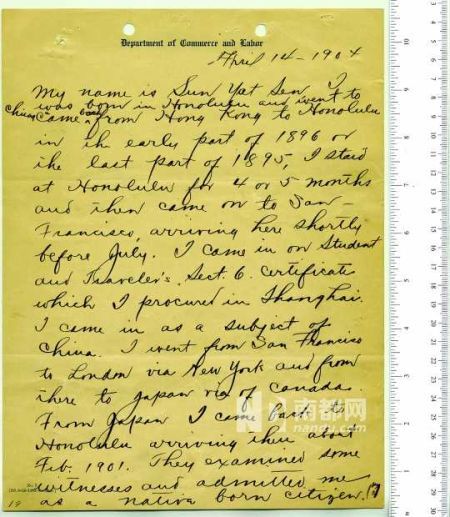 Department of Commerce and Labor
April 14 - 1904
My name is Sun Yat Sen. I
was born in Honolulu and went to
China came back from Hong Kong to Honolulu
in the early part of 1896 or
the last part of 1895, I staid
at Honolulu for 4 or 5 months
and then came on to San-
Francisco, arriving here shortly
before July. I came in on Student
and Traveler's Sect. 6. Certificate
which I procured in Shanghai.
I came in as a subject of
China. I went from San Francisco
to London via New York and from
there to Japan via of Canada.
From Japan I came back to
Honolulu arriving there about
Feb. 1901. They examined some
witnesses and admitted me
as a native born citizen.
南都网
nandu.com
19